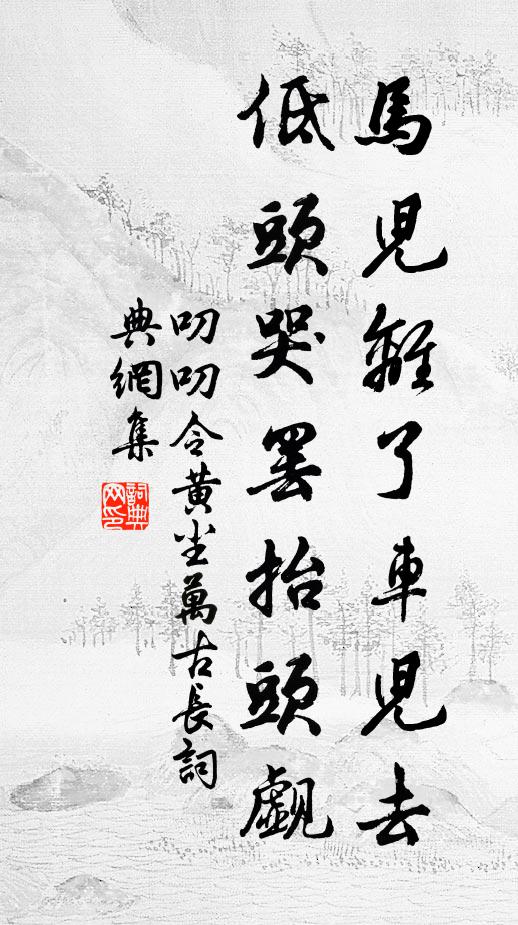 馬兒離了車兒去
低頭哭罷抬頭覷
叨叨令黃尘萬古長詞
典網集
詞典
网印